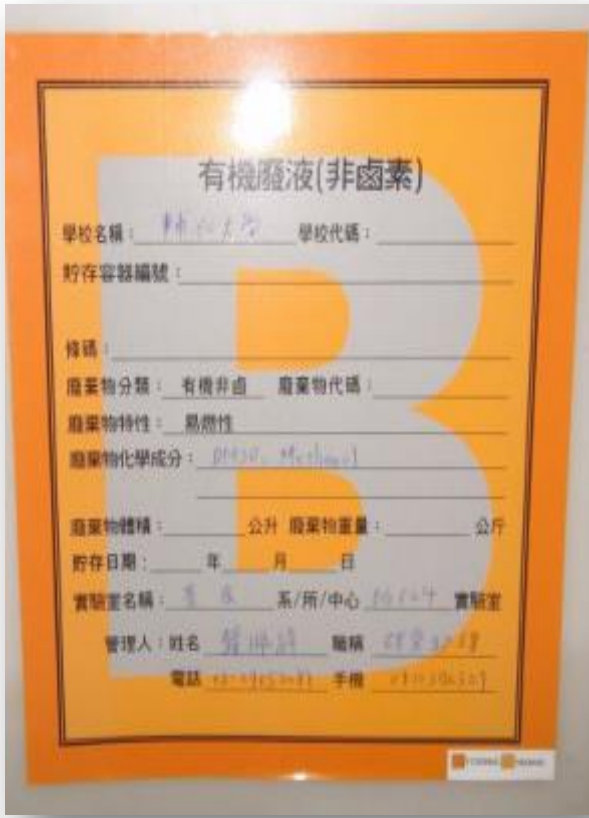 有機廢液(非鹵素)
學校名稱：輔仁大學 學校代碼：
貯存容器編號：
條碼：
廢棄物分類：有機非鹵 廢棄物代碼：
廢棄物特性：易燃性
廢棄物化學成分：DMSO、Methanol
廢棄物體積： 公升 廢棄物重量： 公斤
貯存日期： 年 月 日
實驗室名稱： 系/所/中心 實驗室
管理人：姓名 職稱
電話 手機
B